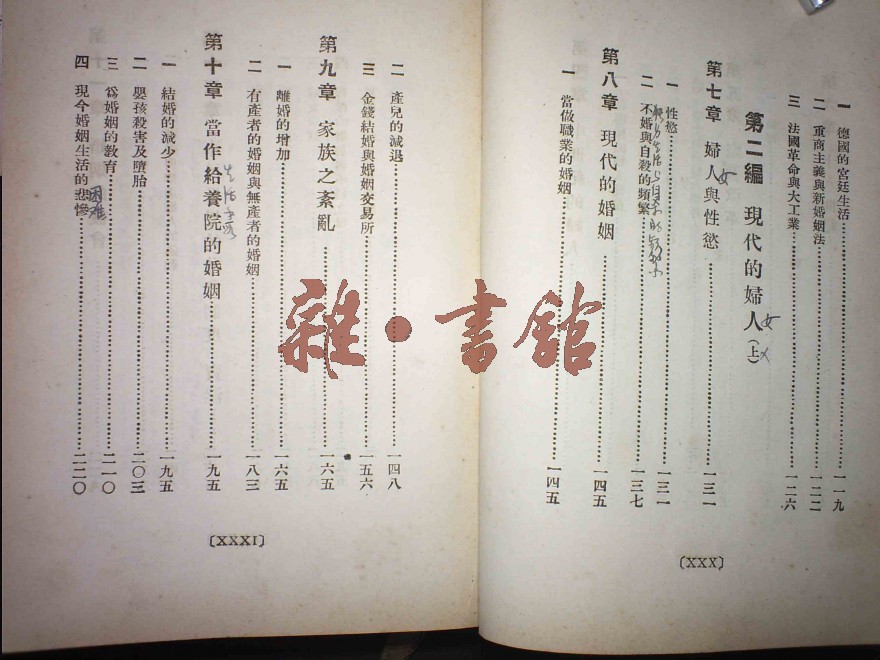 一　德國的宮廷生活……一一九
二　重商主義與新婚姻法……一二二
三　法國革命與大工業……一二六
第二編　現代的婦人(上)
女
第七章　婦人與性慾……一三一
女
一　性慾……一三一
二　不婚與自殺的頻繁……一三七
第八章　現代的婚姻……一四五
一　當做職業的婚姻……一四五
〔XXX〕
二　產兒的減退……一四八
三　金錢結婚與婚姻交易所……一五六
第九章　家族之紊亂……一六五
一　離婚的增加……一六五
二　有產者的婚姻與無產者的婚姻……一八三
第十章　當作給養院的婚姻……一九五
一　結婚的減少……一九五
二　嬰孩殺害及墮胎……二〇三
三　為婚姻的教育……二一〇
四　現今婚姻生活的悲慘……二二〇
困难
〔XXXI〕
雜·書館